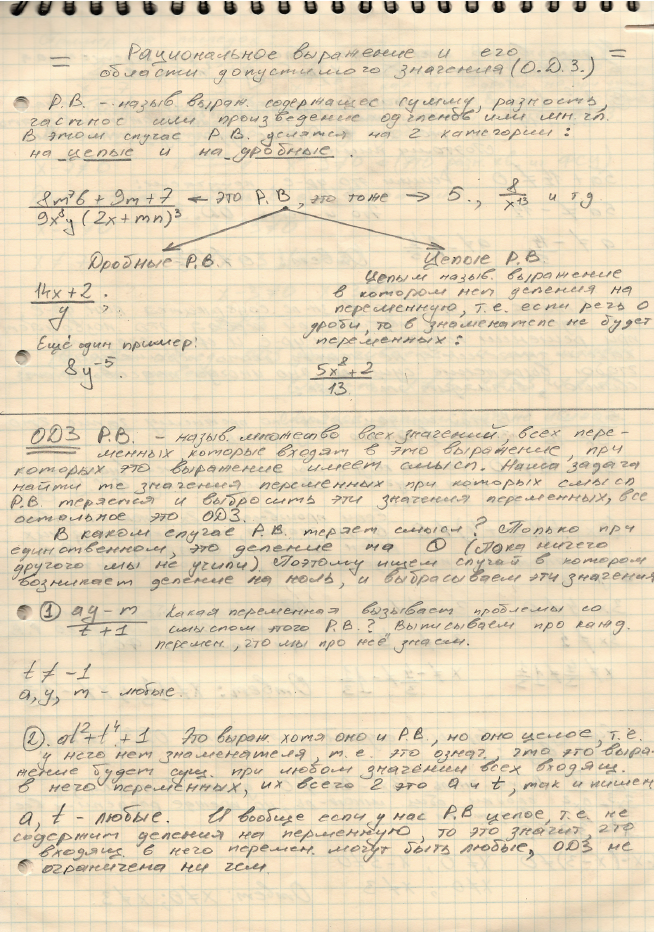 = Рациональное выражение и его =
области допустимого значения (О.Д.З.)
Р.В. - назыв выраж. содержащее сумму, разность,
частное или произведение одгленов или мн. чл.
В этом случае Р.В. делятся на 2 категории:
на целые и на дробные.
(8m⁷b + 9m + 7)/(9x⁸y(2x + mn)³) ← это Р.В, это тоже → 5., 8/x¹³ и тд
Дробные Р.В. Целые Р.В.
Целым назыв. выражение
в котором нет деления на
переменную, т.е. если речь о
дроби, то в знаменателе не будет
переменных:
(14x + 2)/y ;
Ещё один пример:
8y⁻⁵.
(5x⁸ + 2)/13
ОДЗ Р.В. - назыв. множество всех значений, всех пере-
менных, которые входят в это выражение, при
которых это выражение имеет смысл. Наша задача
найти те значения переменных при которых смысл
Р.В. теряется и выбросить эти значения переменных, все
остальное это ОДЗ.
В каком случае Р.В. теряет смысл? Только при
единственном, это деление на 0 (Пока ничего
другого мы не учили) Поэтому ищем случай в котором
возникает деление на ноль, и выбрасываем эти значения
① (ay - m)/(t + 1) Какая переменная вызывает проблемы со
смыслом этого Р.В.? Выписываем про кажд.
перемен., что мы про неё знаем.
t ≠ -1
a, y, m - любые
②. at² + t⁴ + 1 Это выраж. хотя оно и Р.В., но оно целое, т.е.
у него нет знаменателя, т.е. это означ. что это выра-
жение будет сущ. при любом значении всех входящ.
в него переменных, их всего 2 это a и t, так и пишем
a, t - любые. И вообще если у нас Р.В целое, т.е. не
содержит деления на перменную, то это значит, что
входящ в него перемен. могут быть любые, ОДЗ не
ограничена ни чем.